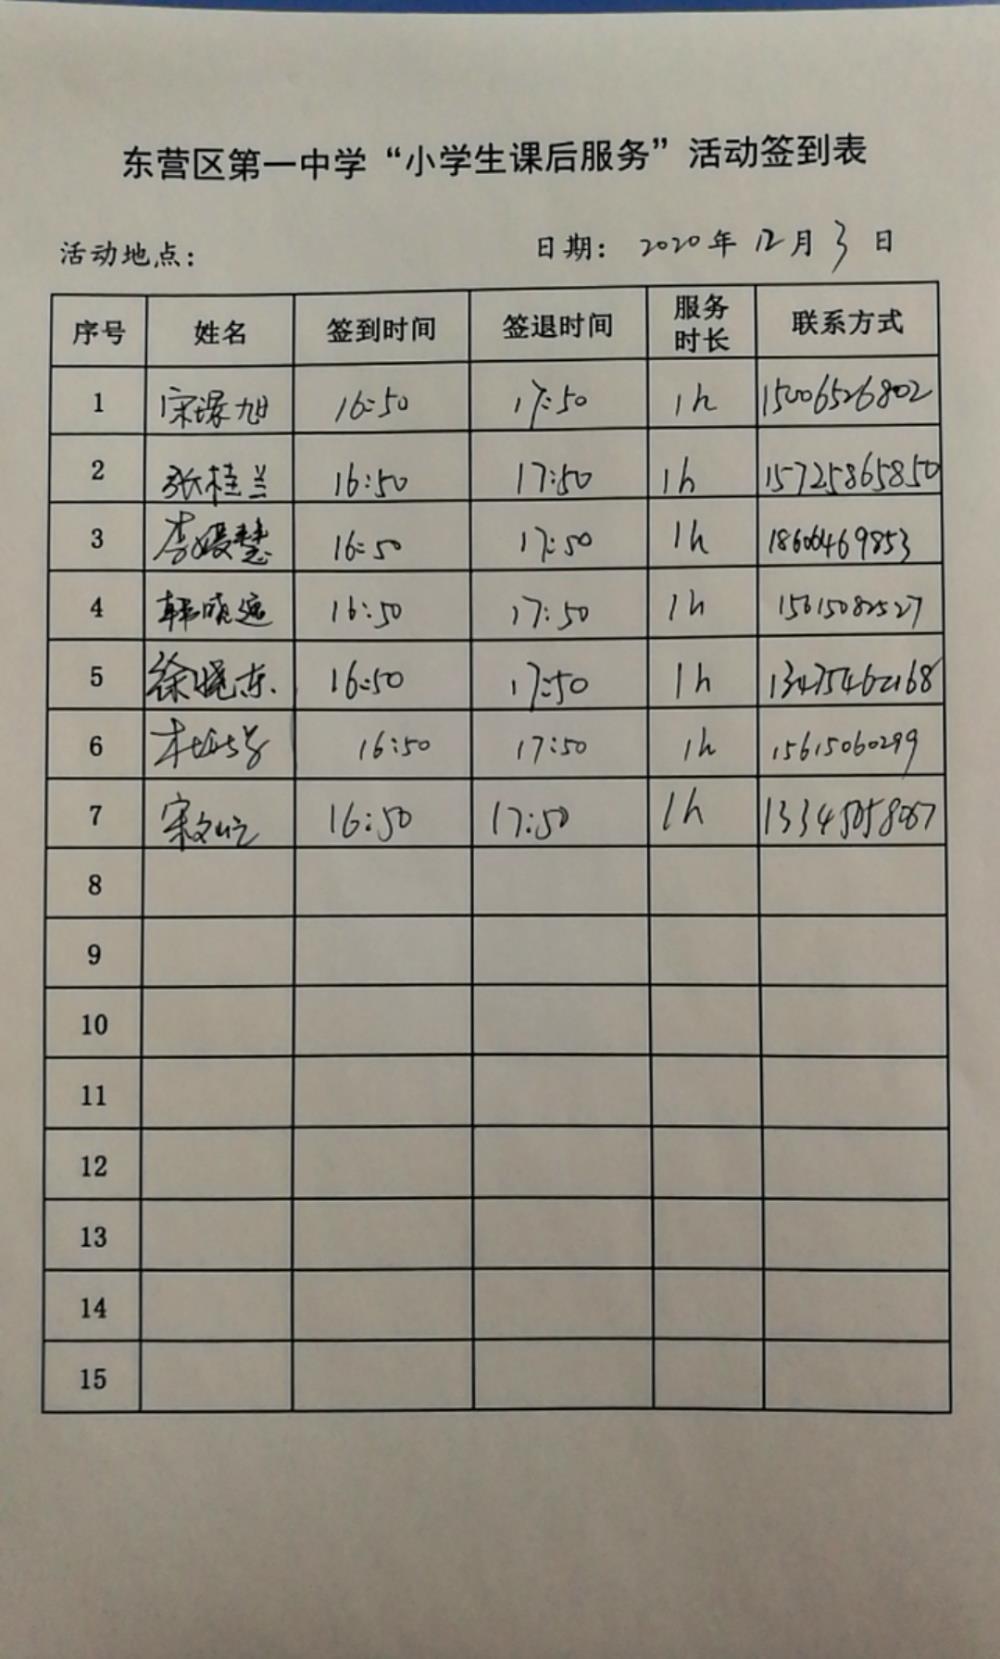 东营区第一中学“小学生课后服务”活动签到表
活动地点： 日期： 2020年12月3日
序号 姓名 签到时间 签退时间 服务时长 联系方式
1 16:50 17:50 1h 15006526802
2 张桂兰 16:50 17:50 1h 15725865850
3 李媛慧 16:50 17:50 1h
4 韩晓 16:50 17:50 1h 15615082527
5 徐晓东 16:50 17:50 1h 13475462168
6 16:50 17:50 1h 15615060299
7 宋文 16:50 17:50 1h
8
9
10
11
12
13
14
15